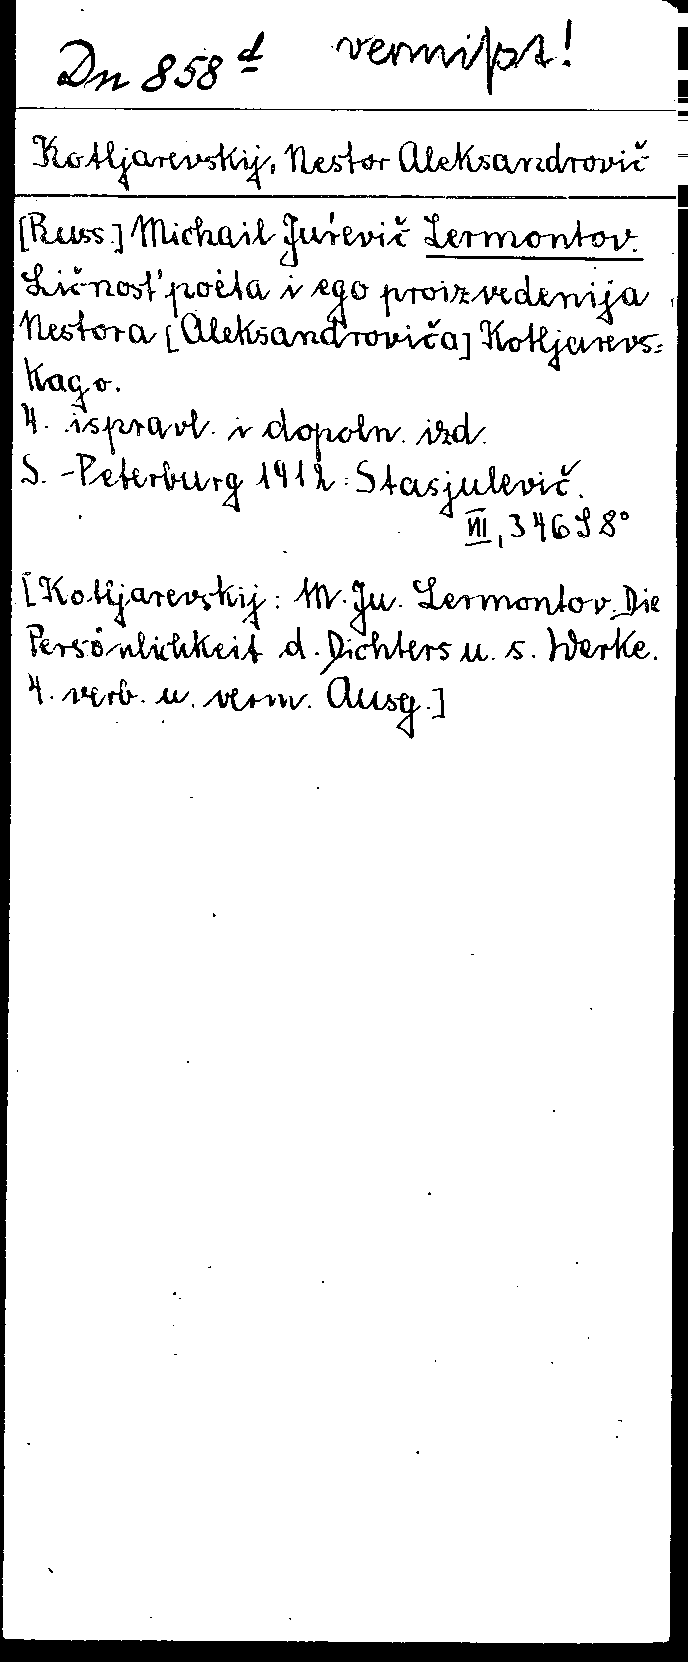 Dn 858 d vermißt!
Kotljarevskij, Nestor Aleksandrovič
[Russ.] Michail Jur'evič Lermontov.
Ličnost' poėta i ego proizvedenija
Nestora [Aleksandroviča] Kotljarevs=
kago.
4. ispravl. i dopoln. izd.
S.-Peterburg 1912: Stasjulevič.
VII, 346 S 8°
[Kotljarevskij: M. Ju. Lermontov. Die
Persönlichkeit d. Dichters u. s. Werke.
4. verb. u. verm. Ausg.]